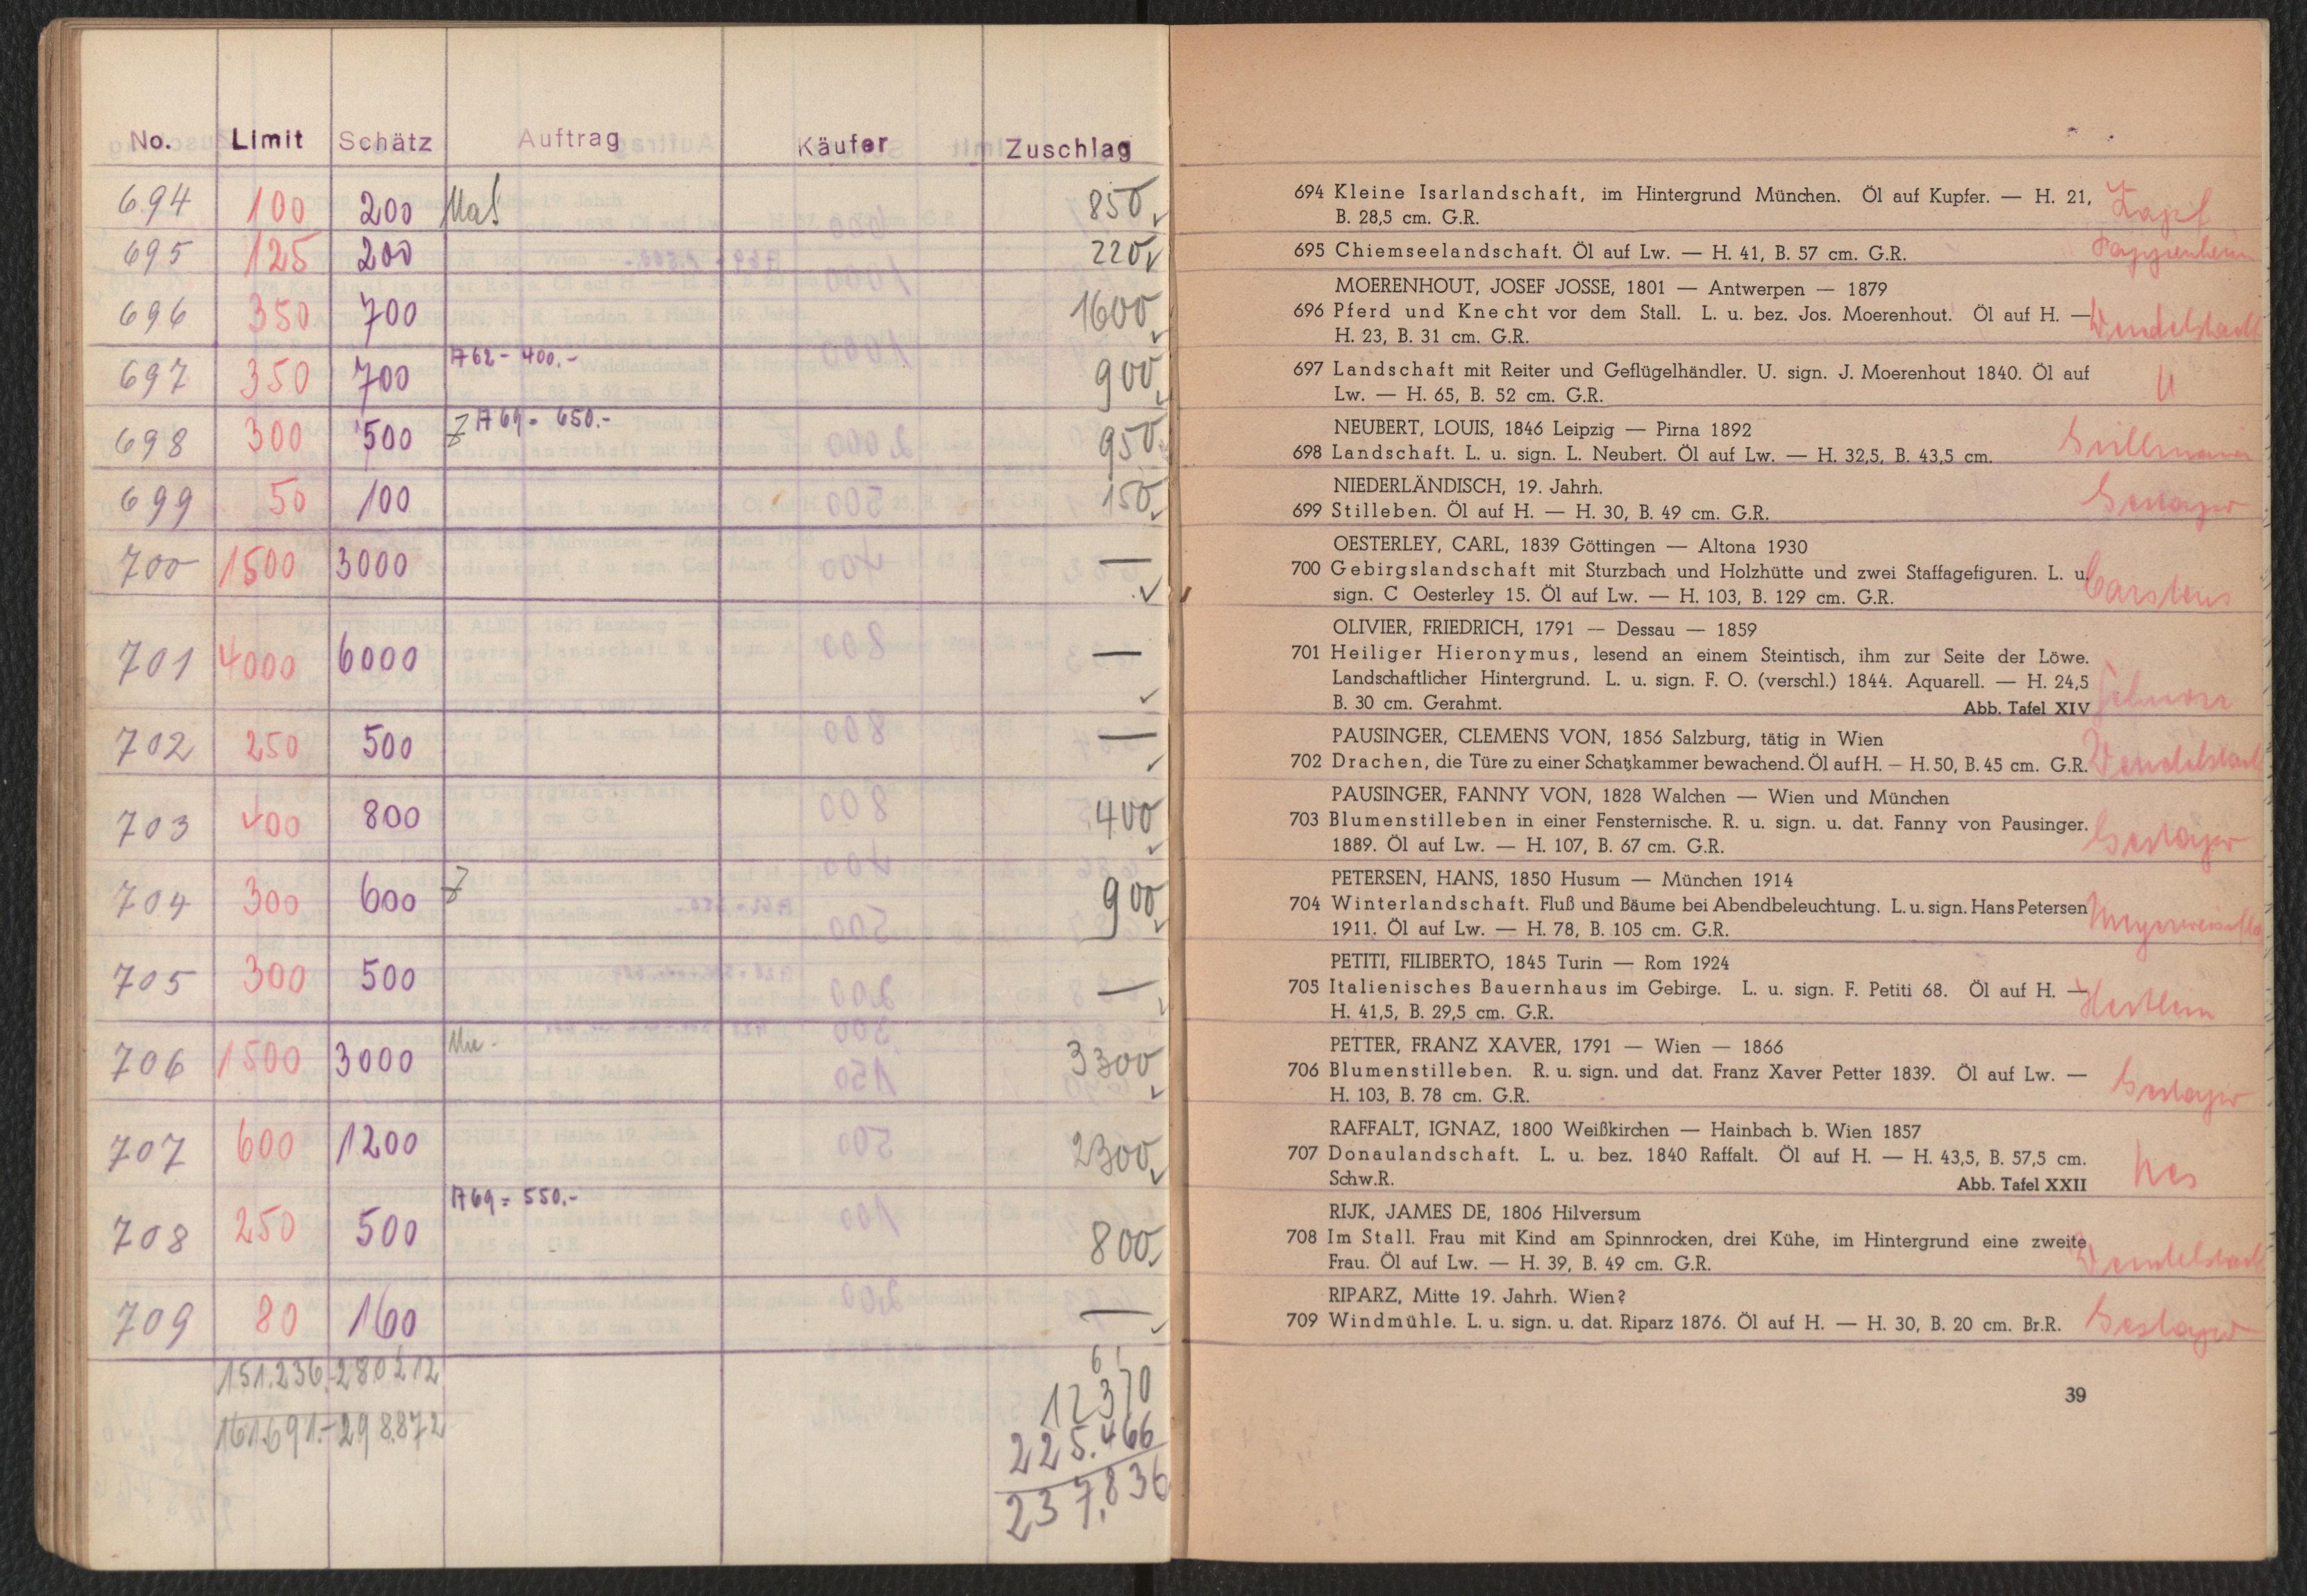 No. Limit Schätz Auftrag Käufer Zuschlag
694 100 200 850
695 125 200 220
696 350 700 1600
697 350 700 A62 - 400.- 900
698 300 500 Z A69 = 650.- 950
699 50 100 150
700 1500 3000 —
701 4000 6000 —
702 250 500 —
703 400 800 400
704 300 600 Z 900
705 300 500 —
706 1500 3000 3300
707 600 1200 2300
708 250 500 A69 = 550.- 800
709 80 160 —
151.236.-280.212
161.691.-298.872
6
12370
225.466
237.836
694 Kleine Isarlandschaft, im Hintergrund München. Öl auf Kupfer. — H. 21,
B. 28,5 cm. G.R.
Zapf
695 Chiemseelandschaft. Öl auf Lw. — H. 41, B. 57 cm. G.R.
Pappenheim
MOERENHOUT, JOSEF JOSSE, 1801 — Antwerpen — 1879
696 Pferd und Knecht vor dem Stall. L. u. bez. Jos. Moerenhout. Öl auf H. —
H. 23, B. 31 cm. G.R.
Wendelstadt
697 Landschaft mit Reiter und Geflügelhändler. U. sign. J. Moerenhout 1840. Öl auf
Lw. — H. 65, B. 52 cm. G.R.
"
NEUBERT, LOUIS, 1846 Leipzig — Pirna 1892
698 Landschaft. L. u. sign. L. Neubert. Öl auf Lw. — H. 32,5, B. 43,5 cm.
NIEDERLÄNDISCH, 19. Jahrh.
699 Stilleben. Öl auf H. — H. 30, B. 49 cm. G.R.
OESTERLEY, CARL, 1839 Göttingen — Altona 1930
700 Gebirgslandschaft mit Sturzbach und Holzhütte und zwei Staffagefiguren. L. u.
sign. C Oesterley 15. Öl auf Lw. — H. 103, B. 129 cm. G.R.
Carstens
OLIVIER, FRIEDRICH, 1791 — Dessau — 1859
701 Heiliger Hieronymus, lesend an einem Steintisch, ihm zur Seite der Löwe.
Landschaftlicher Hintergrund. L. u. sign. F. O. (verschl.) 1844. Aquarell. — H. 24,5
B. 30 cm. Gerahmt. Abb. Tafel XIV
PAUSINGER, CLEMENS VON, 1856 Salzburg, tätig in Wien
702 Drachen, die Türe zu einer Schatzkammer bewachend. Öl auf H. — H. 50, B. 45 cm. G.R.
Wendelstadt
PAUSINGER, FANNY VON, 1828 Walchen — Wien und München
703 Blumenstilleben in einer Fensternische. R. u. sign. u. dat. Fanny von Pausinger.
1889. Öl auf Lw. — H. 107, B. 67 cm. G.R.
PETERSEN, HANS, 1850 Husum — München 1914
704 Winterlandschaft. Fluß und Bäume bei Abendbeleuchtung. L. u. sign. Hans Petersen
1911. Öl auf Lw. — H. 78, B. 105 cm. G.R.
PETITI, FILIBERTO, 1845 Turin — Rom 1924
705 Italienisches Bauernhaus im Gebirge. L. u. sign. F. Petiti 68. Öl auf H. —
H. 41,5, B. 29,5 cm. G.R.
PETTER, FRANZ XAVER, 1791 — Wien — 1866
706 Blumenstilleben. R. u. sign. und dat. Franz Xaver Petter 1839. Öl auf Lw. —
H. 103, B. 78 cm. G.R.
RAFFALT, IGNAZ, 1800 Weißkirchen — Hainbach b. Wien 1857
707 Donaulandschaft. L. u. bez. 1840 Raffalt. Öl auf H. — H. 43,5, B. 57,5 cm.
Schw.R. Abb. Tafel XXII
RIJK, JAMES DE, 1806 Hilversum
708 Im Stall. Frau mit Kind am Spinnrocken, drei Kühe, im Hintergrund eine zweite
Frau. Öl auf Lw. — H. 39, B. 49 cm. G.R.
Wendelstadt
RIPARZ, Mitte 19. Jahrh. Wien?
709 Windmühle. L. u. sign. u. dat. Riparz 1876. Öl auf H. — H. 30, B. 20 cm. Br.R.
39